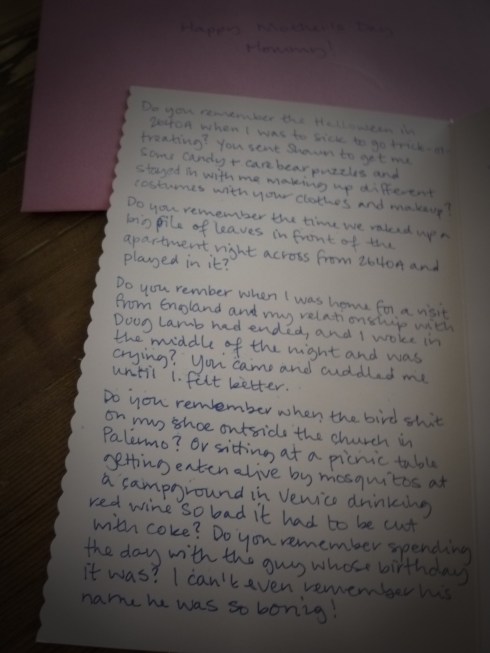 Happy Mother's Day
Mommy!
Do you remember the Halloween in
2640A when I was to sick to go trick-or
treating? You sent Shawn to get me
some candy + carebear puzzles and
stayed in with me making up different
costumes with your clothes and makeup?
Do you remember the time we raked up a
big pile of leaves in front of the
apartment right across from 2640A and
played in it?
Do you rember when I was home for a visit
from England and my relationship with
Doug Lamb had ended, and I woke in
the middle of the night and was
crying? You came and cuddled me
until I felt better.
Do you remember when the bird shit
on my shoe outside the church in
Palermo? Or sitting at a picnic table
getting eaten alive by mosquitos at
a campground in Venice drinking
red wine so bad it had to be cut
with coke? Do you remember spending
the day with the guy whose birthday
it was? I can't even remember his
name he was so boring!